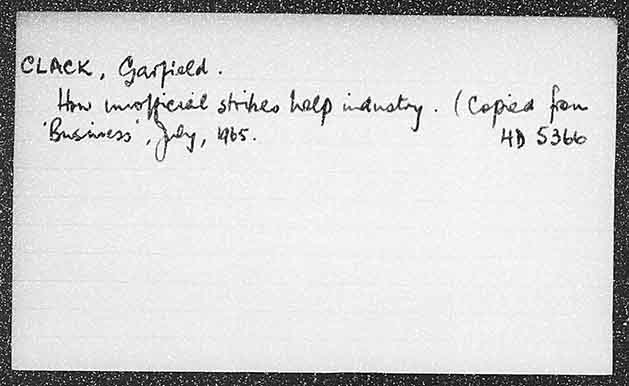 CLACK, Garfield.
How unofficial strikes help industry. (Copied from
'Business', July, 1965.
HD 5366